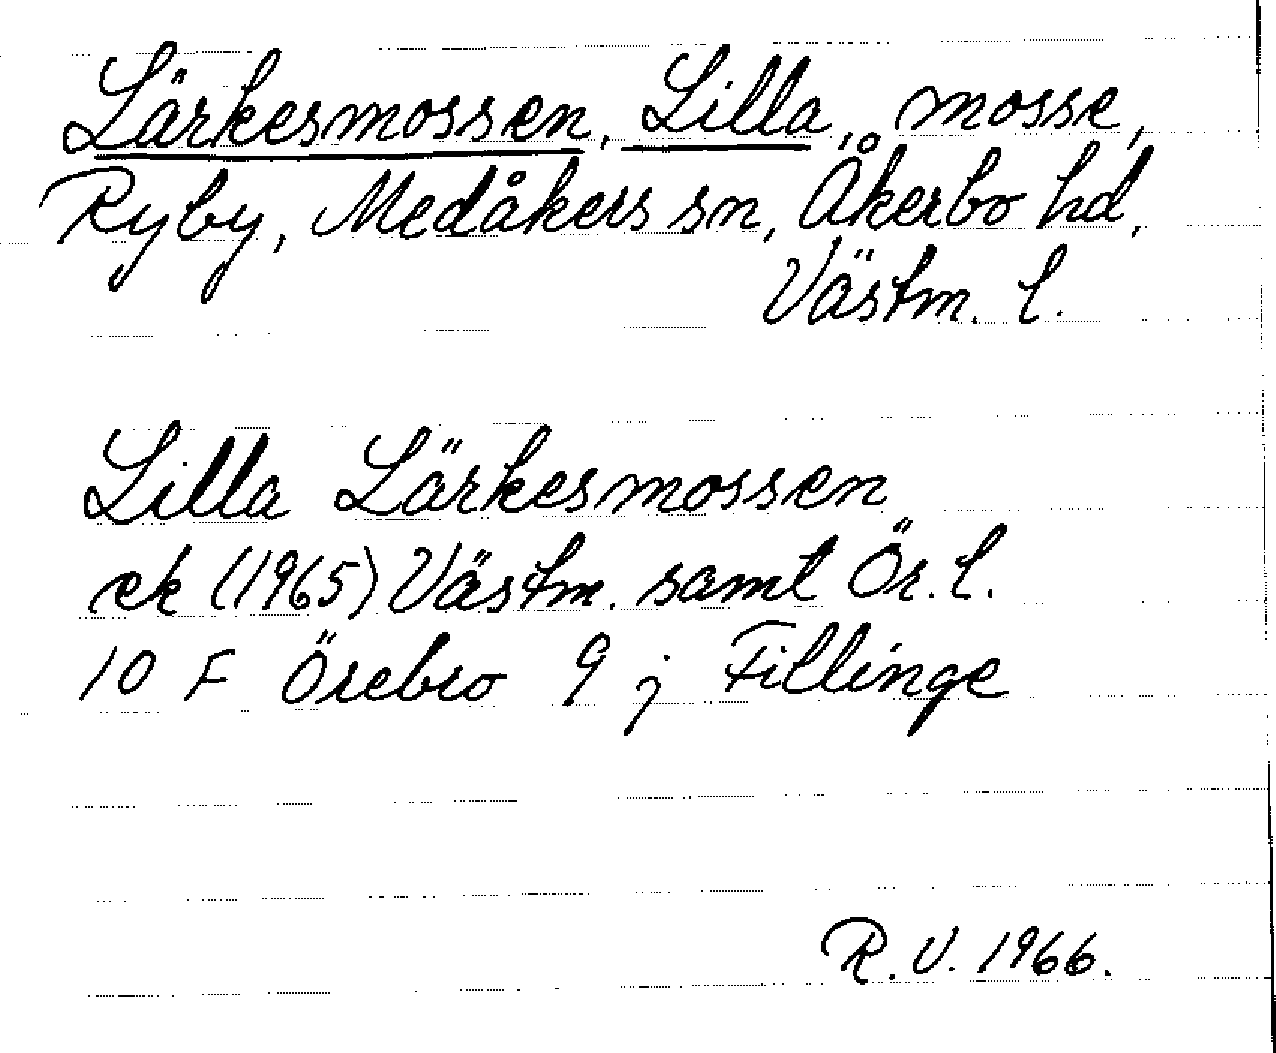 Lärkesmossen, Lilla, mosse,
Ryby, Medåkers sn, Åkerbo hd,
Västm. l.
Lilla Lärkesmossen
ek (1965) Västm. samt Ör. l.
10 F Örebro 9 j Fillinge
R.V. 1966.